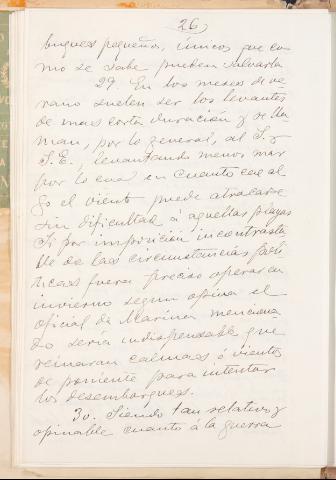 26
buques pequeños, únicos que co-
mo se sabe pueden salvarla
29. En los meses de ve-
rano suelen ser los levantes
de mas corta duración y se lla-
man, por lo general, al S. y
S.E., levantando menos mar
por lo cual en cuanto cae al-
go el viento puede atracarse
sin dificultad á aquellas playas
Si por imposición incontrasta-
ble de las circunstancias polí-
ticas fuera preciso operar en
invierno segun opina el
oficial de Marina menciona-
do seria indispensable que
reinaran calmas ó vientos
de poniente para intentar
los desembarques.
30. Siendo tan relativo y
opinable cuanto á la guerra